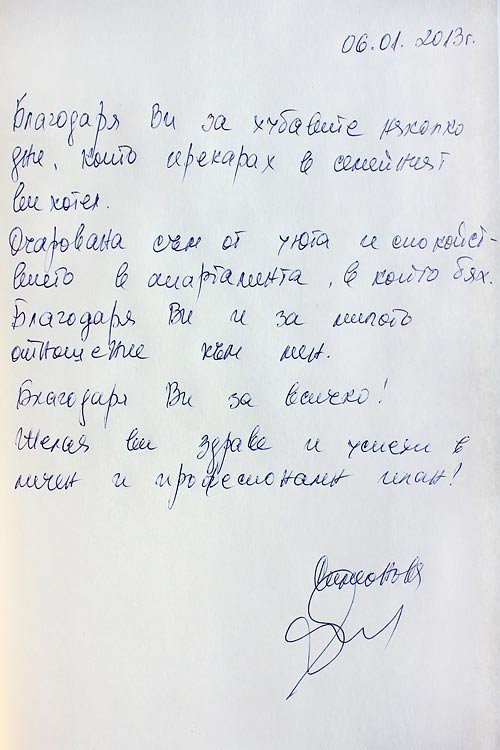 06.01. 2013г.
Благодаря Ви за хубавите няколко
дни, които прекарах в семейният
ви хотел.
Очарована съм от уюта и спокойст-
вието в апартамента, в който бях.
Благодаря Ви и за милото
отношение към мен.
Благодаря Ви за всичко!
Желая ви здраве и успехи в
личен и професионален план!